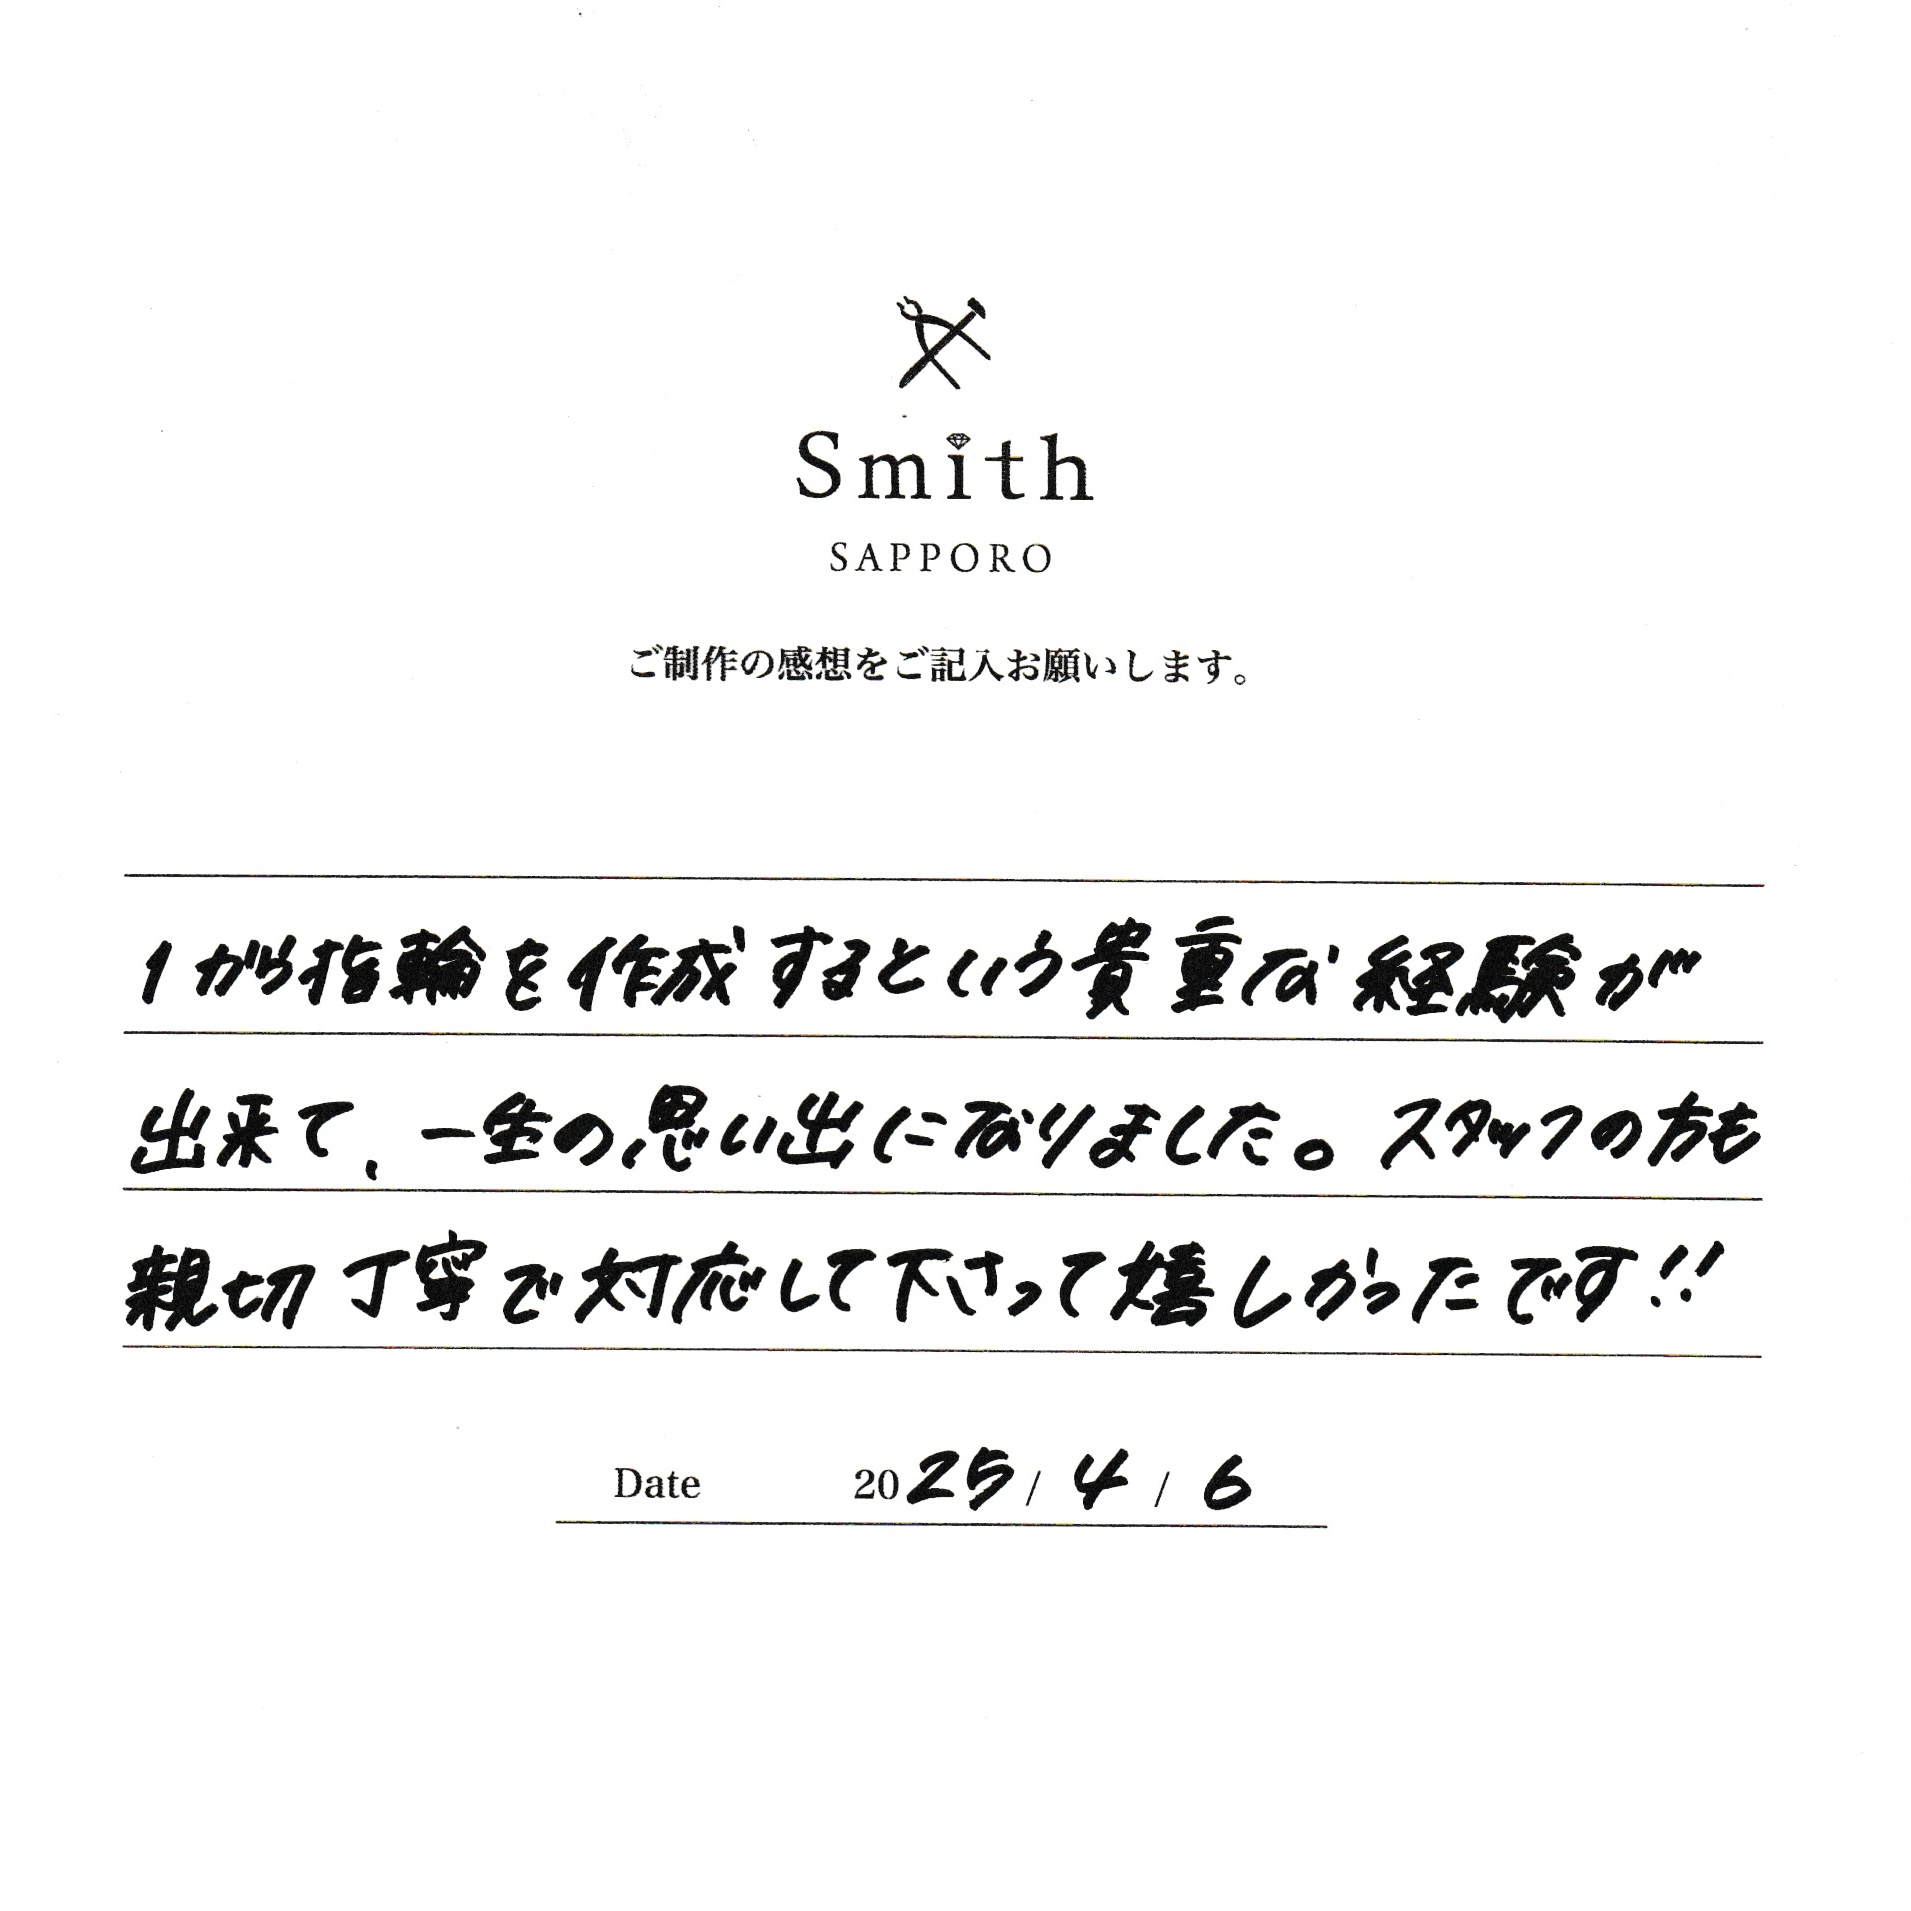 Smith
SAPPORO
ご制作の感想をご記入お願いします。
1から指輪を作成するという貴重な経験が
出来て、一生の思い出になりました。スタッフの方も
親切丁寧で対応して下さって嬉しかったです!!
Date 2025/4/6